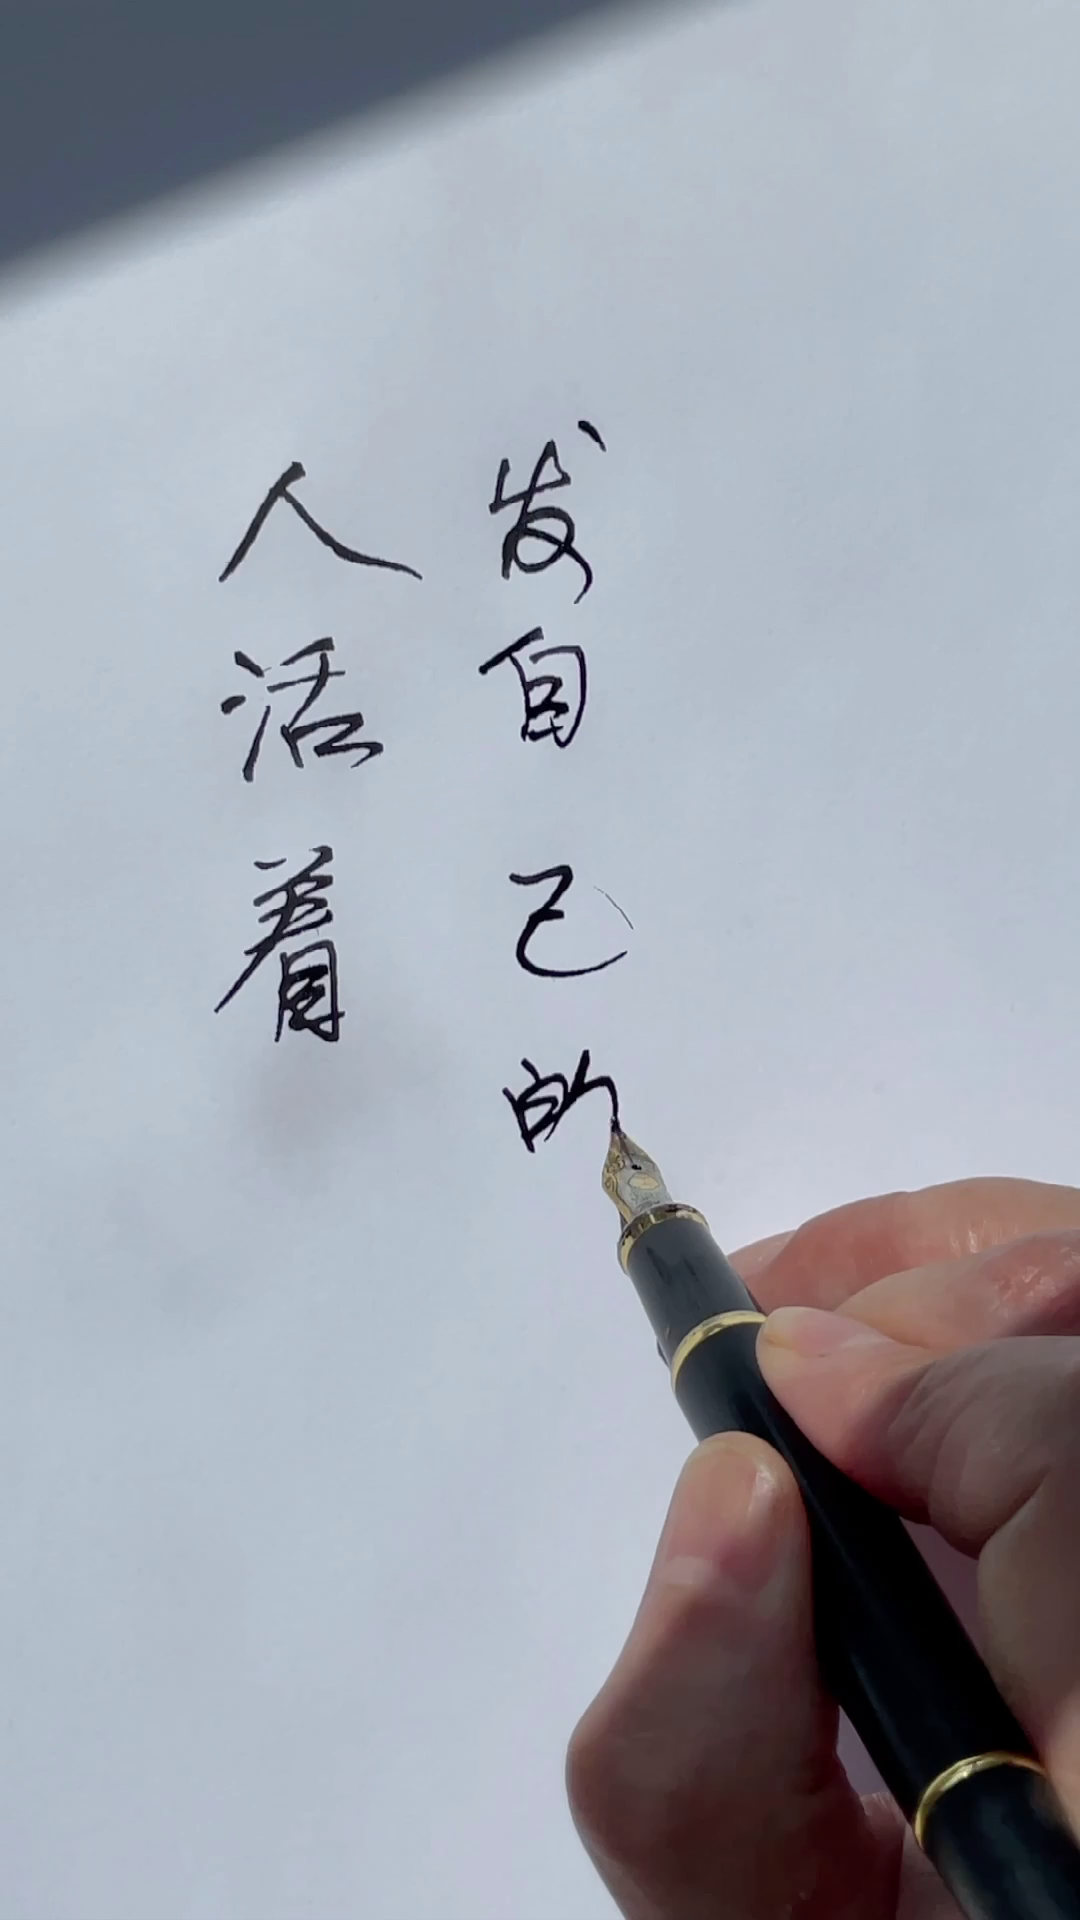 人活着
发自己的